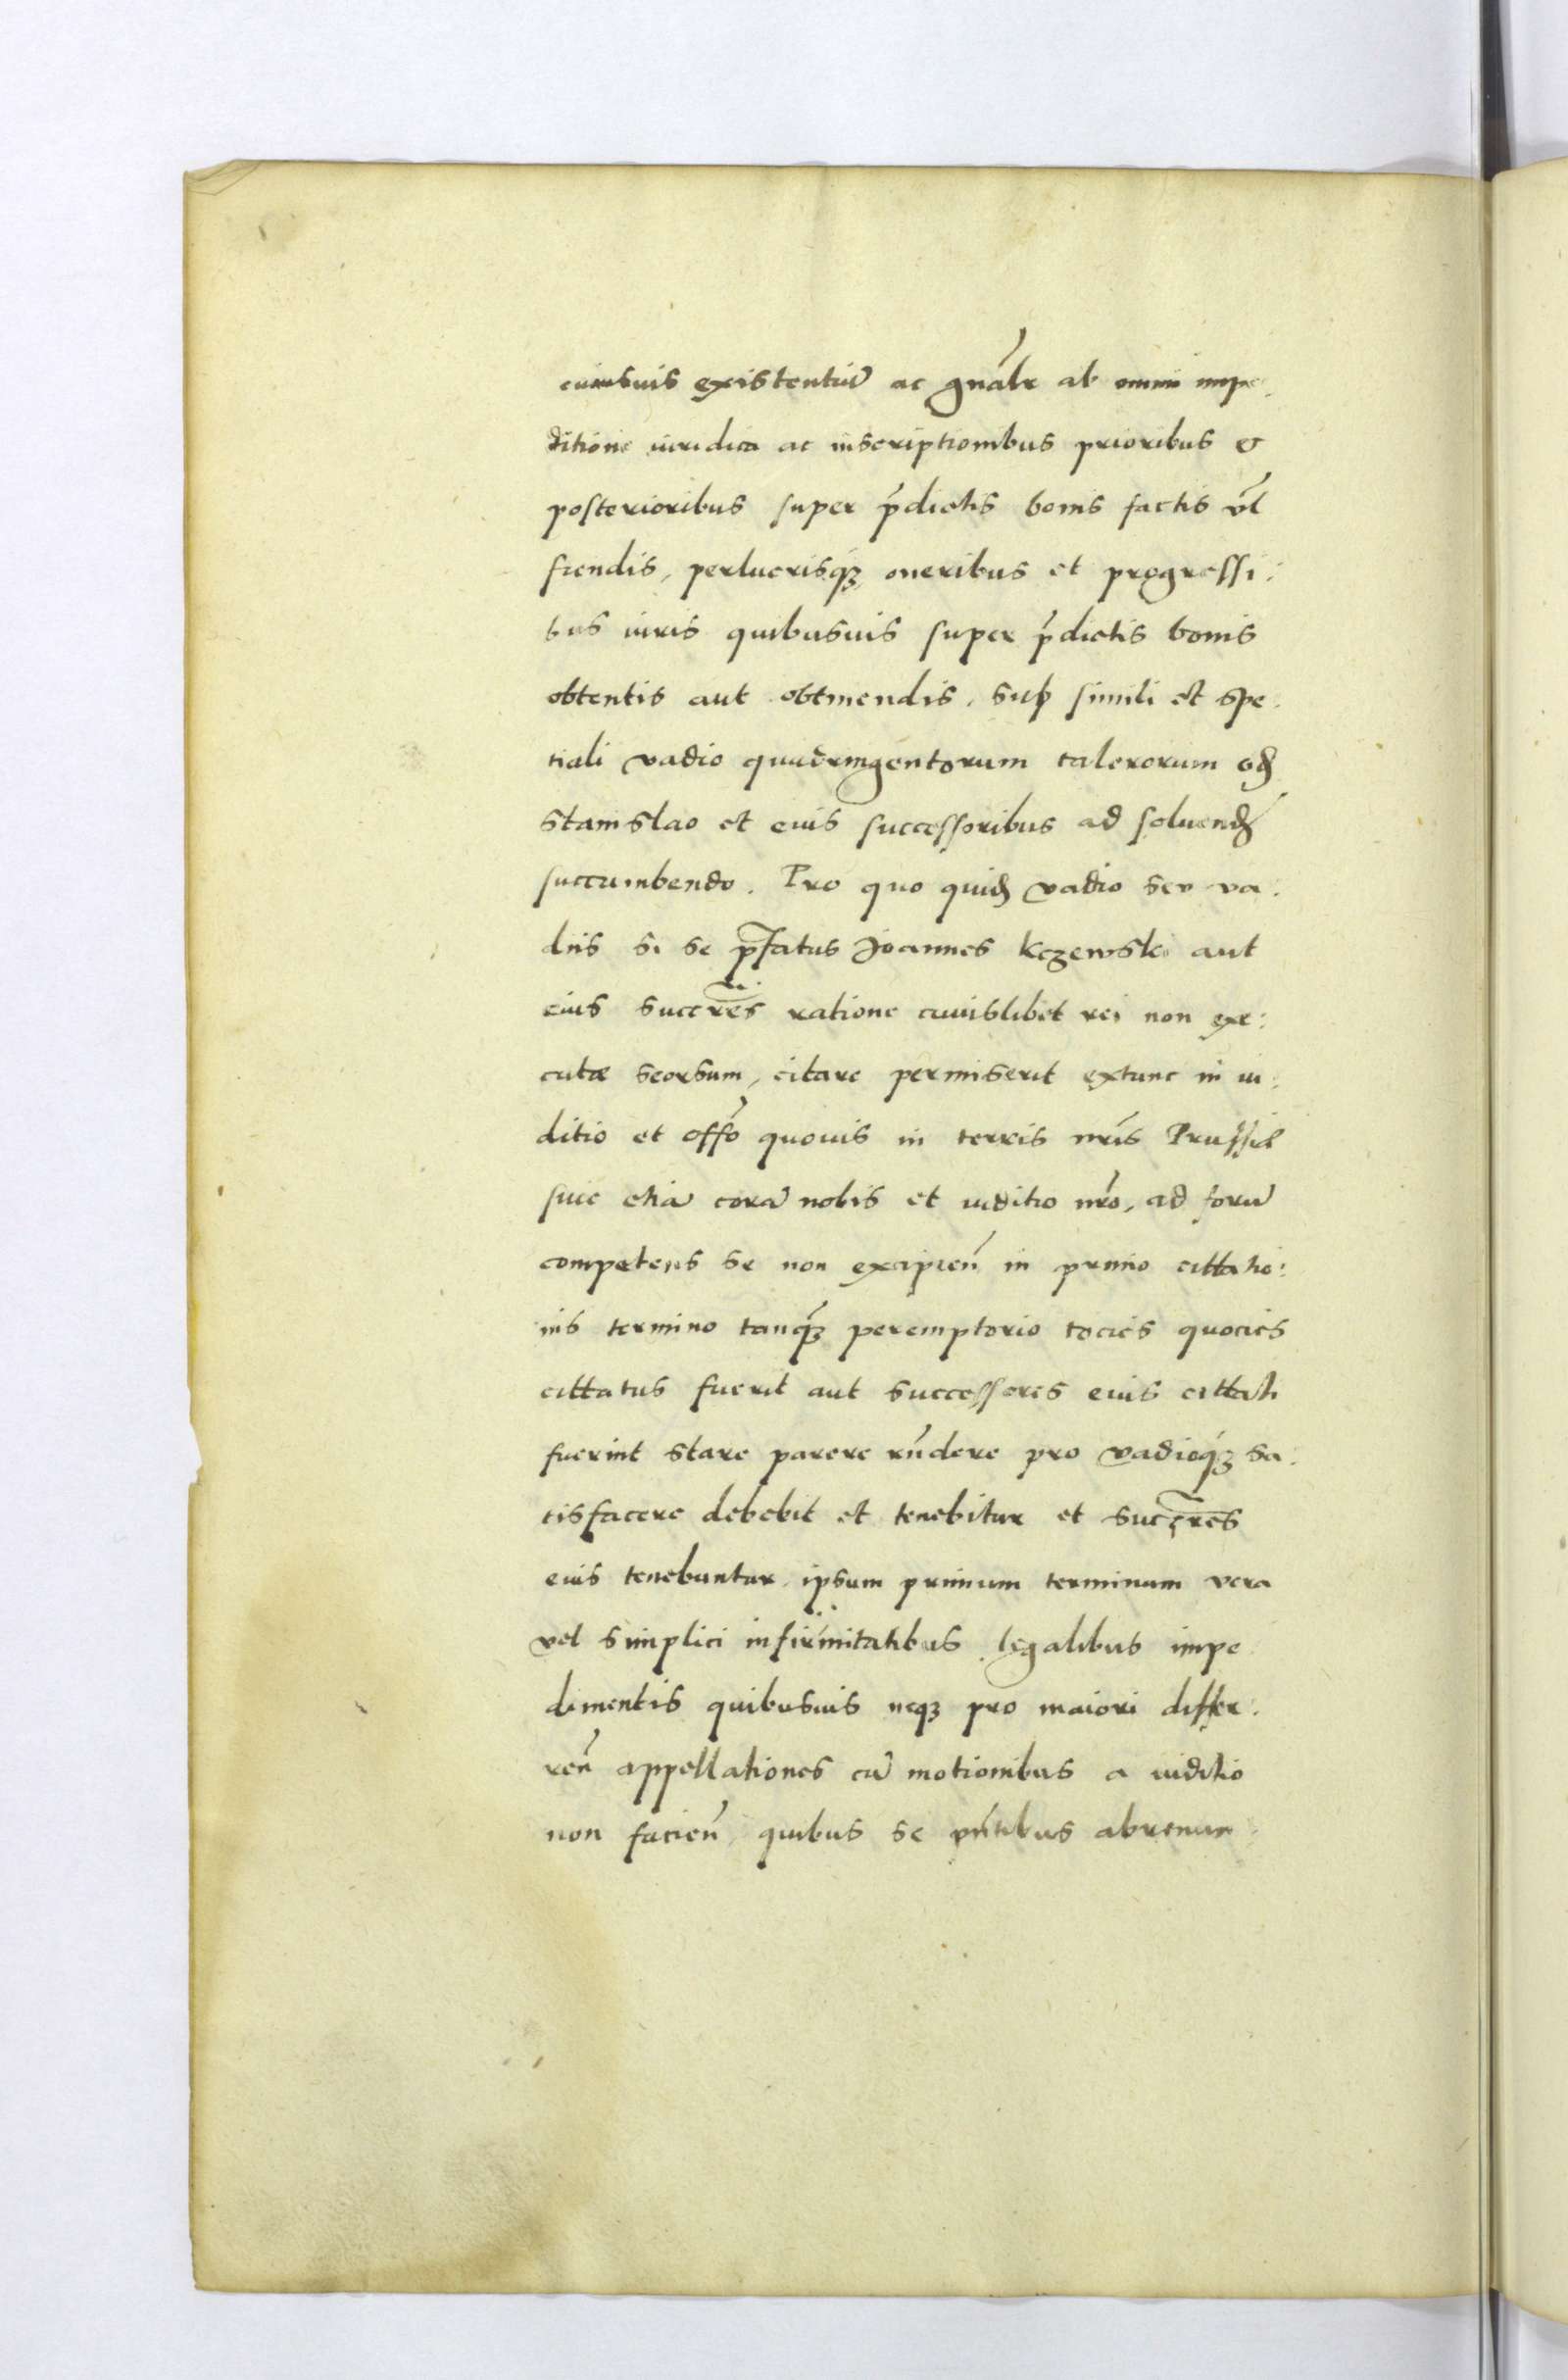 cuiusuis existentiū ac gnãlr ab omni impe.
ditione iuridica ac inscriptionibus prioribus &
posterioribus super p̃dictis bonis factis vl̃
fiendis, perlucrisq3 oneribus et progressi:
bus iuris quibusuis super p̃dictis bonis
obtentis aut obtinendis. sub simili et spe.
tiali vadio quadringentorum talerorum eḍ
Stanislao et eius successoribus ad soluenḍ
succumbendo. Pro quo quiḍ vadio seu va.
diis si se p̃fatus Joannes Kczewski aut
eius succ̃res ratione cuiuslibet rei non exe:
cutæ seorsum, citare permiserit extunc in iu:
ditio et offo quouis in terris nr̃is Prussiæ
siue etiā corā nobis et iuditio nr̃o, ad forū
competens se non excipien̄ in primo cittatio:
nis termino tanq̃3 peremptorio tocies quocies
cittatus fuerit aut successores eius cittati
fuerint stare parere rñdere pro vadioq3 sa.
tisfacere debebit et tenebitur et succ̃res
eius tenebuntur. ipsum primum terminum vera
vel simplici infirmitatibus legalibus impe
dimentis quibusuis neq3 pro maiori differ:
ren̄ appellationes cū motionibus a iuditio
non facien̄, quibus se pn̄tibus abrenun.